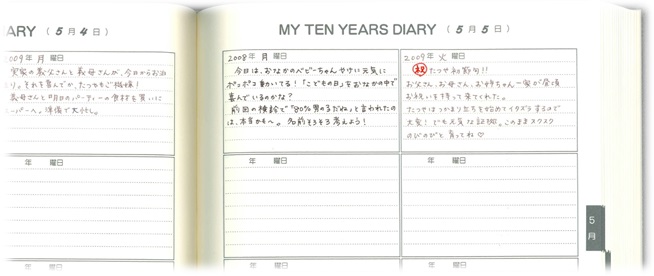 ARY ( 5 月 4 日 )
009年 月 曜日
実家の義父さんと義母さんが、今日からお泊
り。それを喜んでか、たつやもご機嫌!
義母さんと明日のパーティーの食材を買いに
ーパーへ。準備で大忙し。
年 曜日
年 曜日
MY TEN YEARS DIARY ( 5 月 5 日 )
2008年 月 曜日
今日は、おなかのベビーちゃんやけに元気に
ポコポコ動いてる!「こどもの日」をおなかの中で
喜んでいるのかな?
前回の検診で“80%男の子だね”と言われたの
は、本当かも〜。名前そろそろ考えよう!
2009年 火 曜日
祝 たつや初節句!!
お父さん、お母さん、お姉ちゃん一家が昼頃
お祝いを持って来てくれた。
たつやはつかまり立ちを始めてイタズラするほど
大変!でも元気な証拠。このままスクスク
のびのびと育ってね♡
年 曜日
年 曜日
年 曜日
年 曜日
5
月